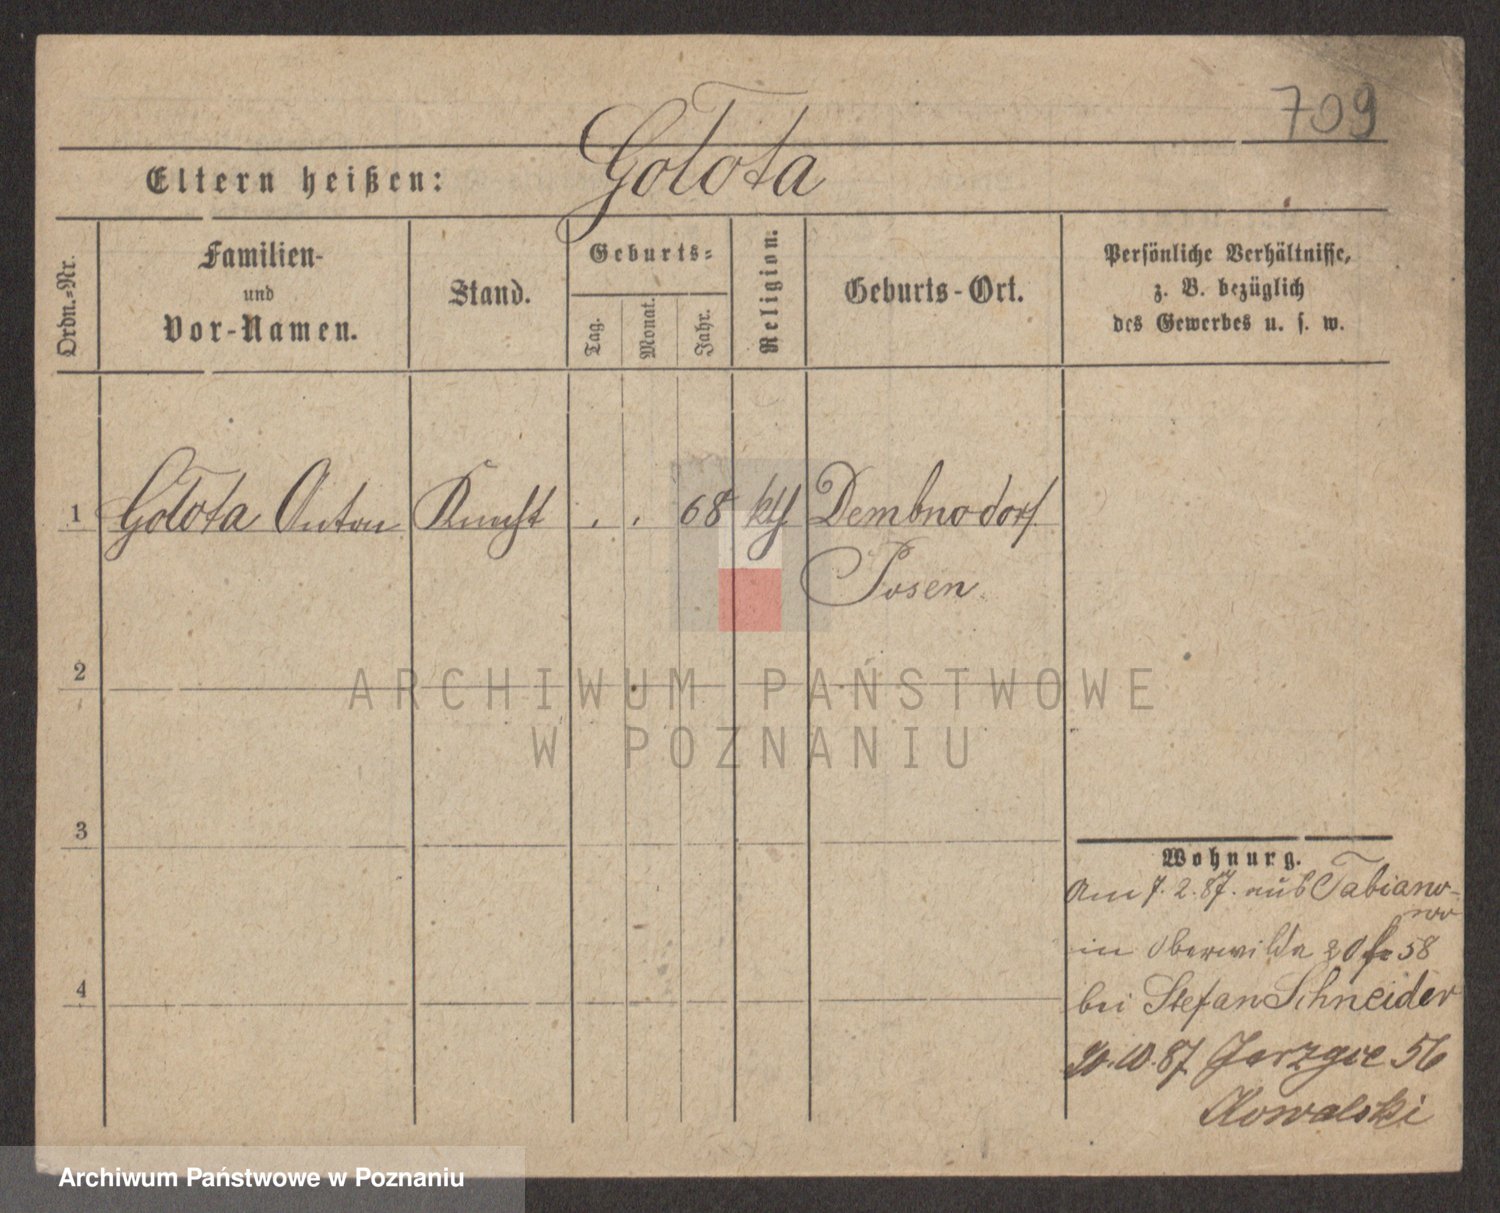 709
Golota
Eltern heißen:
Ordn.=Nr.
Familien-
und
Vor-Namen.
Stand.
Geburts=
Tag.
Monat.
Jahr.
Religion.
Geburts-Ort.
Persönliche Verhältnisse,
z. B. bezüglich
des Gewerbes u. s. w.
1 Golota Anton Knecht . . 68 kth Dembno dorf
Posen.
2
ARCHIWUM PAŃSTWOWE
W POZNANIU
3
4
Wohnung.
Am 7.2.87. aus Fabiano-
wo
in Oberwilda 58
bei Stefan Schneider
10.87 56
Kowalski
Archiwum Państwowe w Poznaniu